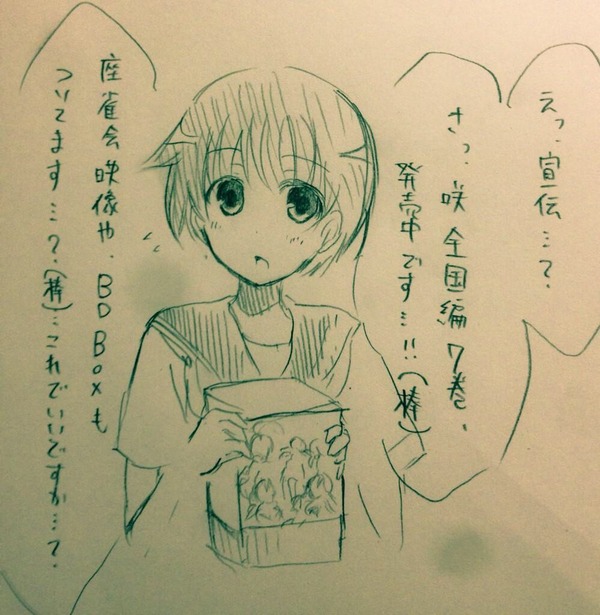 えっ、宣伝…?、
さっ、咲 全国編 7巻、
発売中です…!!(棒)
座雀会映像や、BD Boxも
ついてます…?、(棒)…これでいいですか…?、